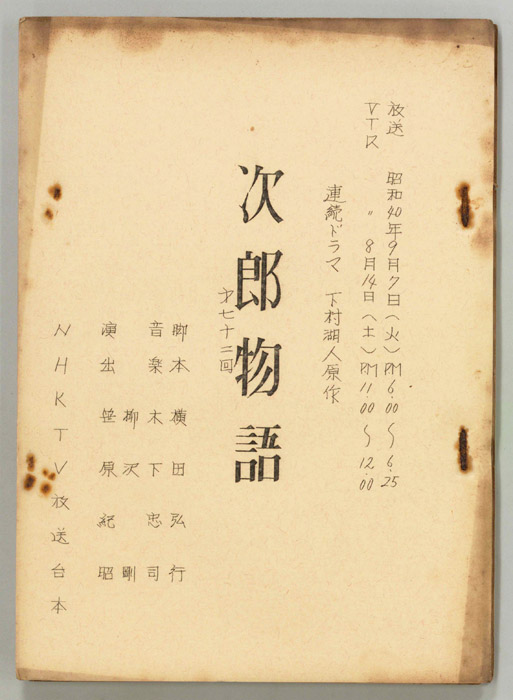 放送 昭和40年9月7日(火)PM6.00～6.25
VTR 〃 8月14日(土)PM11.00～12.00
連続ドラマ 下村湖人原作
次郎物語
第七十三回
脚本 横田弘行
音楽 木下忠司
柳沢剛
演出 笹原紀昭
NHKTV放送台本